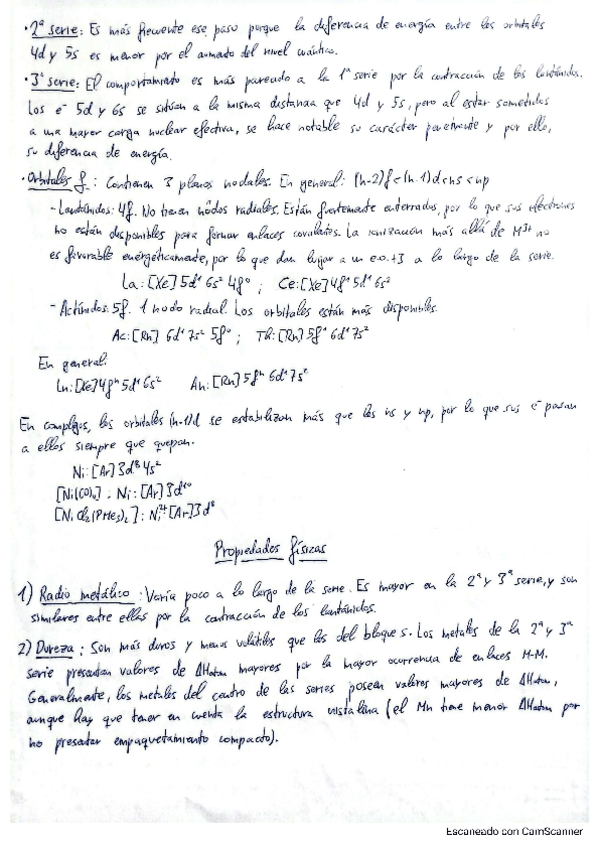 · 2ª serie: Es más frecuente ese paso porque la diferencia de energía entre los orbitales
4d y 5s es menor por el aumento del nivel cuántico.
· 3ª serie: El comportamiento es más parecido a la 1ª serie por la contracción de los lantánidos.
Los e⁻ 5d y 6s se sitúan a la misma distancia que 4d y 5s, pero al estar sometidos
a una mayor carga nuclear efectiva, se hace notable su carácter penetrante y por ello,
su diferencia de energía.
· Orbitales f: Contienen 3 planos nodales. En general: (n-2)f<(n-1)d<ns<np
- Lantánidos: 4f. No tienen nodos radiales. Están fuertemente enterrados, por lo que sus electrones
no están disponibles para formar enlaces covalentes. La ionización más allá de M³⁺ no
es favorable energéticamente, por lo que dan lugar a un e.o. +3 a lo largo de la serie.
La: [Xe] 5d¹ 6s² 4f⁰ ; Ce: [Xe] 4f¹ 5d¹ 6s²
- Actínidos: 5f. 1 nodo radial. Los orbitales están más disponibles.
Ac: [Rn] 6d¹ 7s² 5f⁰ ; Th: [Rn] 5f¹ 6d¹ 7s²
En general:
Ln: [Xe] 4fⁿ 5d¹ 6s² An: [Rn] 5fⁿ 6d¹ 7s²
En complejos, los orbitales (n-1)d se estabilizan más que los ns y np, por lo que sus e⁻ pasan
a ellos siempre que quepan.
Ni: [Ar] 3d⁸ 4s²
[Ni(CO)₄] . Ni: [Ar] 3d¹⁰
[Ni Cl₂(PMe₃)₂] : Ni²⁺ [Ar] 3d⁸
Propiedades físicas
1) Radio metálico: Varía poco a lo largo de la serie. Es mayor en la 2ª y 3ª serie, y son
similares entre ellas por la contracción de los lantánidos.
2) Dureza: Son más duros y menos volátiles que los del bloque s. Los metales de la 2ª y 3ª
serie presentan valores de ΔHatom mayores por la mayor ocurrencia de enlaces M-M.
Generalmente, los metales del centro de las series poseen valores mayores de ΔHatom,
aunque hay que tener en cuenta la estructura cristalina (el Mn tiene menor ΔHatom por
no presentar empaquetamiento compacto).
Escaneado con CamScanner